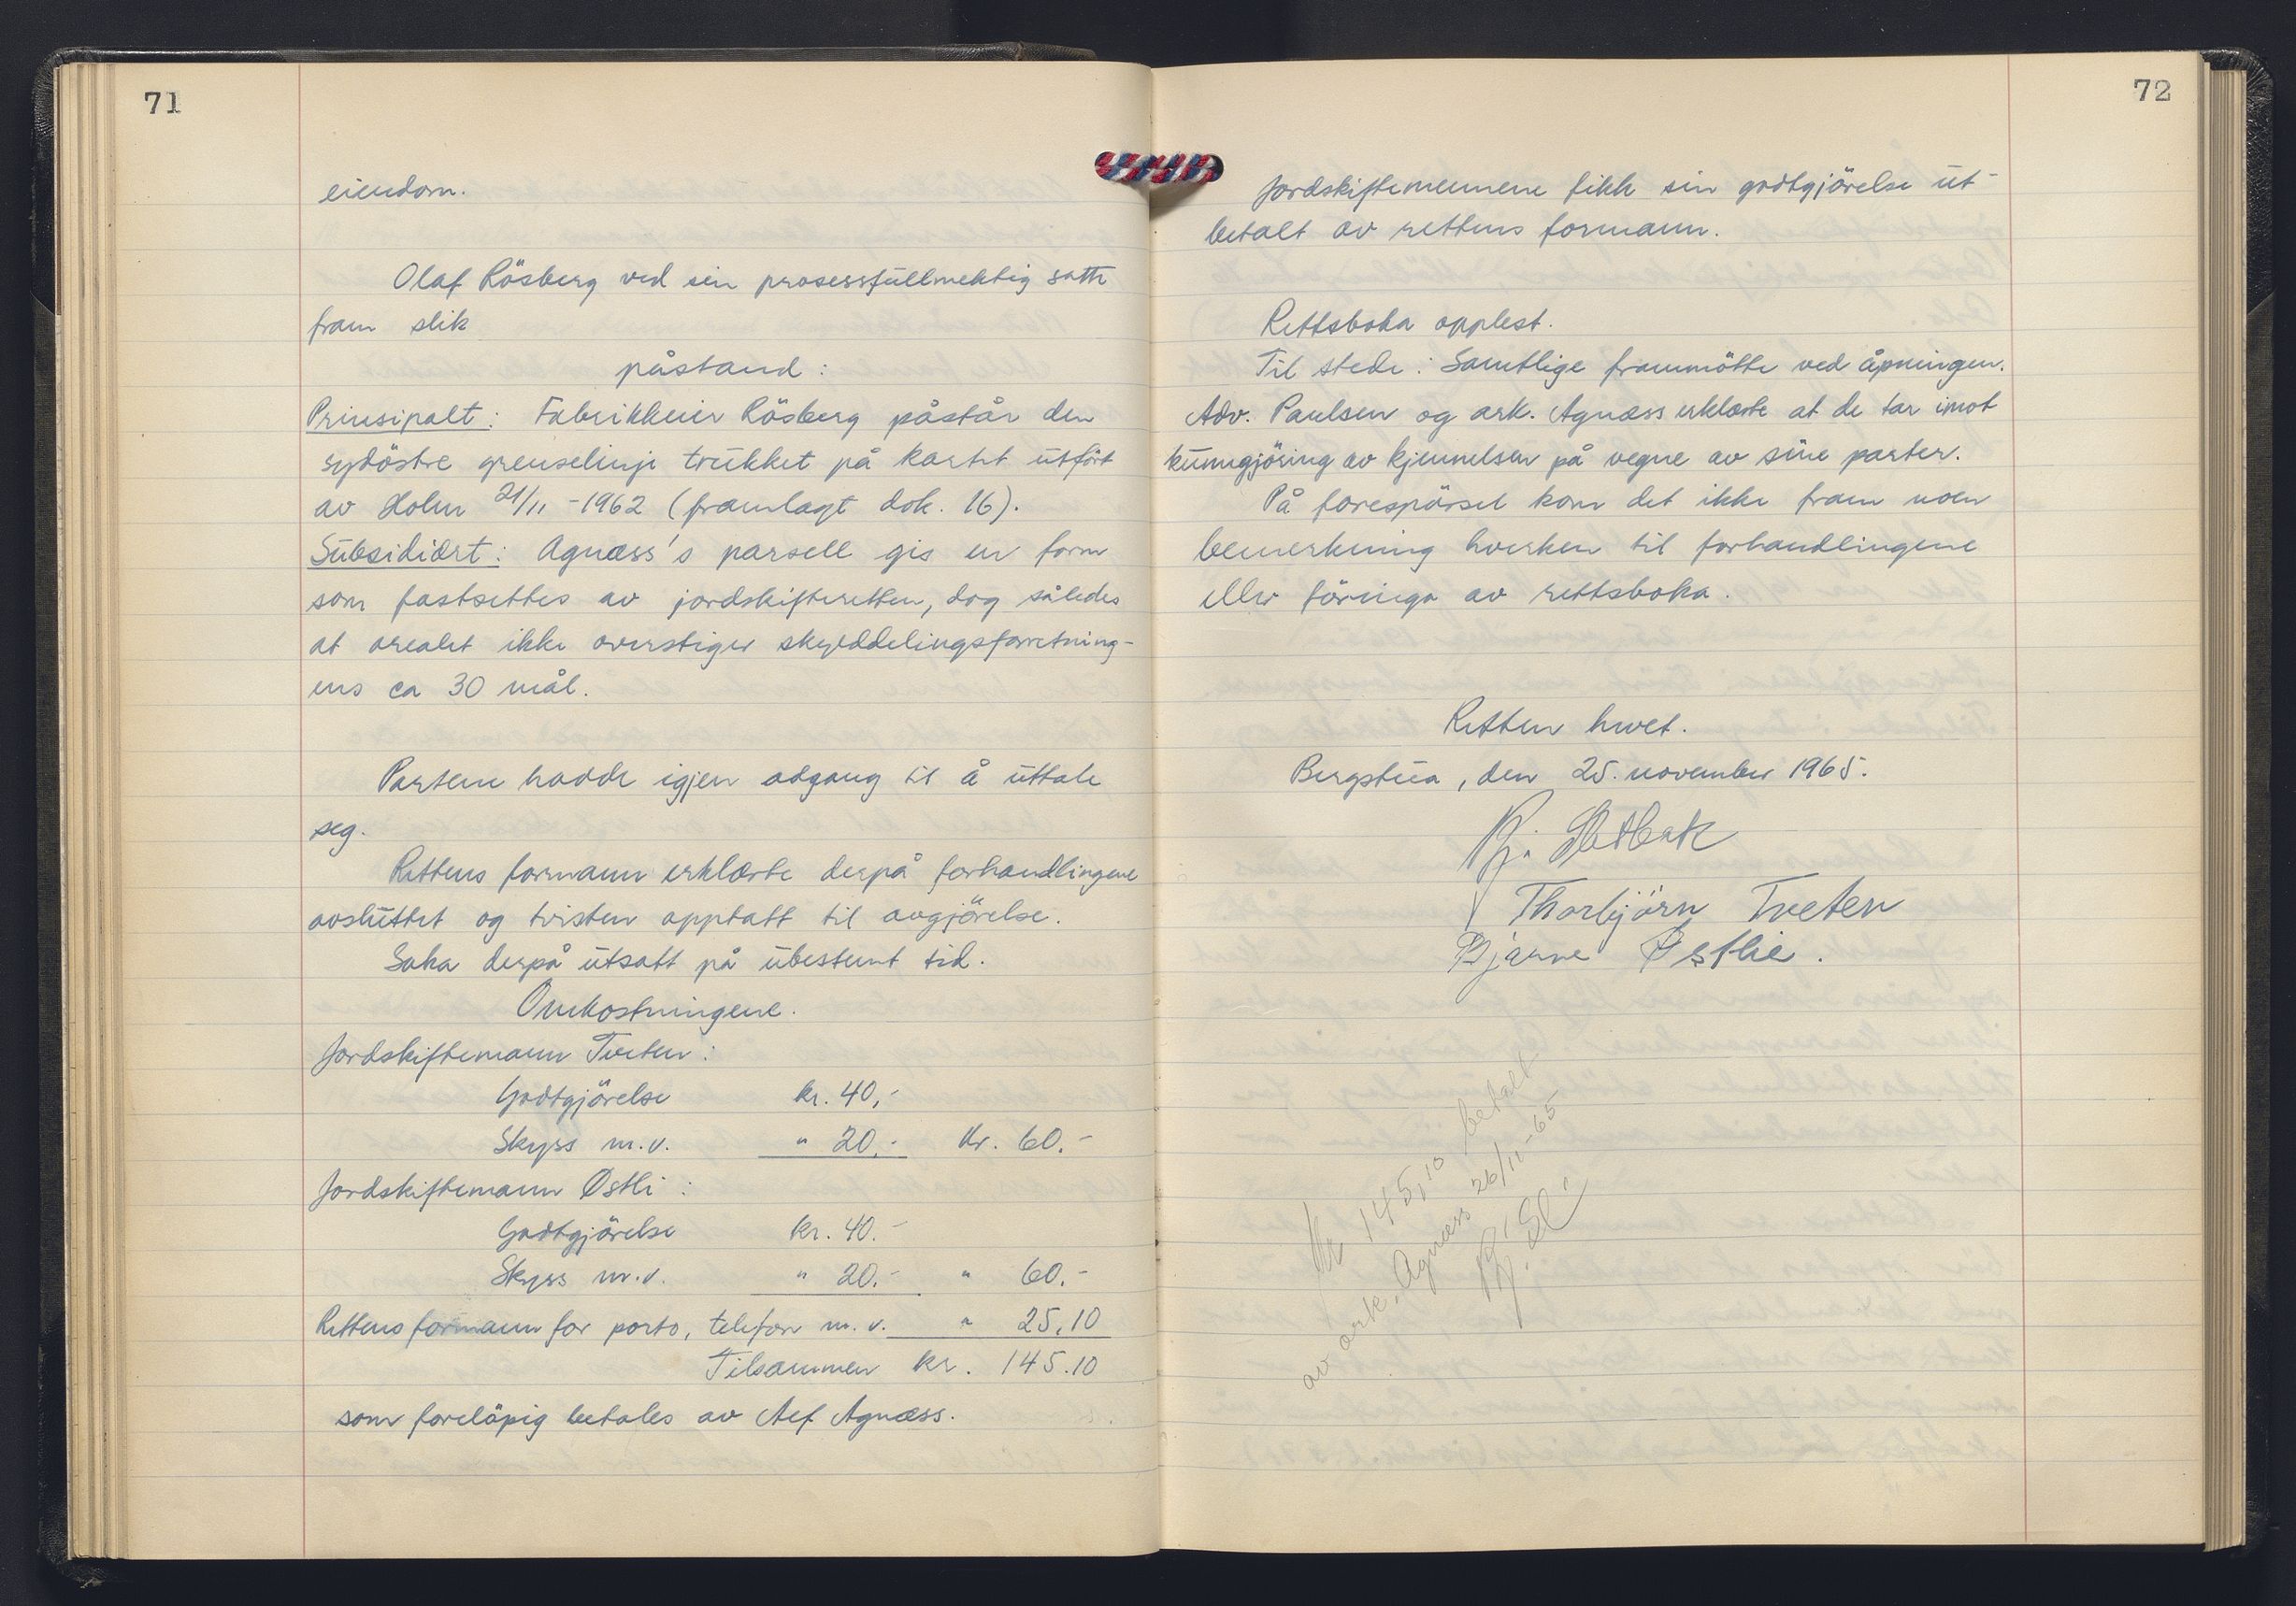 71
eiendom.
Olaf Rösberg ved sin prosessfullmektig satte
fram slik
påstand:
Prinsipalt: Fabrikkeier Rösberg påstår den
sydöstre grenselinje trukket på kartet utfört
av Holm 21/11-1962 (framlagt dok. 16).
Subsidiært: Agnæss's parsell gis en form
som fastsettes av jordskifteretten, dog således
at arealet ikke overstiger skylddelingsforretning-
ens ca 30 mål.
Partene hadde igjen adgang til å uttale
seg.
Rettens formann erklærte derpå forhandlingene
avsluttet og tvisten opptatt til avgjörelse.
Saka derpå utsatt på ubestemt tid.
Omkostningene.
Jordskiftemann Tveten:
Godtgjörelse kr. 40,-
Skyss m.v. " 20.- Kr. 60.-
Jordskiftemann Østli:
Godtgjörelse kr. 40.-
Skyss m.v. " 20.- " 60.-
Rettens formann for porto, telefon m.v. " 25,10
Tilsammen kr. 145.10
som foreløpig betales av Agnæss.
72
Jordskiftemennene fikk sin godtgjörelse ut-
betalt av rettens formann.
Rettsboka opplest.
Til stede: Samtlige frammötte ved åpningen.
Adv. Paulsen og ark. Agnæss erklærte at de tar imot
kunngjöring av kjennelsen på vegne av sine parter.
På forespörsel kom det ikke fram noen
bemerkning hverken til forhandlingene
eller föringa av rettsboka.
Retten hevet.
Bergstua, den 25. november 1965.
Thorbjörn Tveten
Bjarne Østlie.
Kr 145,10 betalt
av ark. Agnæss 26/11-65